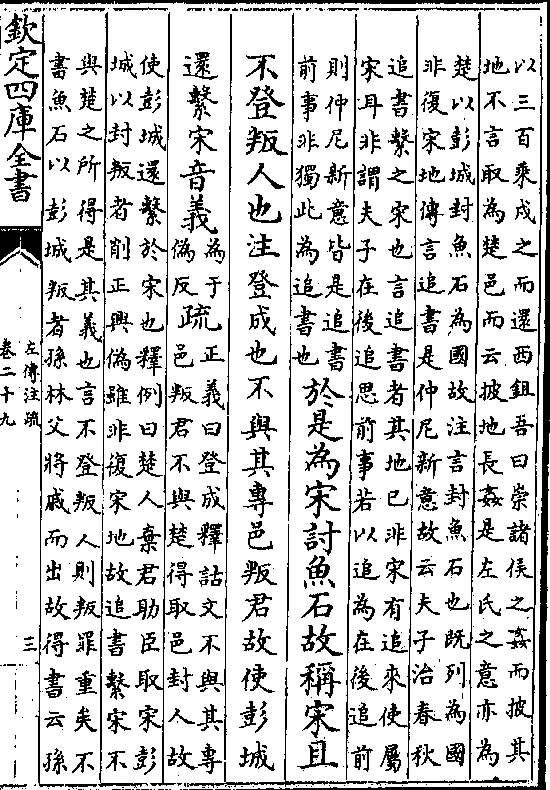 以三百乘戍之而還西鉏吾曰崇諸侯之姦而披其
地不言取為楚邑而云披地長姦是左氏之意亦為
楚以彭城封魚石為國故注言封魚石也既列為國
非復宋地傳言追書是仲尼新意故云夫子治春秋
追書繫之宋也言追書者其地已非宋有追來使屬
宋耳非謂夫子在後追思前事若以追為在後追前
則仲尼新意皆是追書
前事非獨此為追書也
於是為宋討魚石故稱宋且
不登叛人也注登成也不與其專邑叛君故使彭城
還繫宋音義
為于
偽反
疏
正義曰登成釋詁文不與其專
邑叛君不與楚得取邑封人故
使彭城還繫於宋也釋例曰楚人棄君助臣取宋彭
城以封叛者削正興偽雖非復宋地故追書繫宋不
與楚之所得是其義也言不登叛人則叛罪重矣不
書魚石以彭城叛者孫林父將戚而出故得書云孫
欽定四庫全書
左傳注疏
卷二十九
三